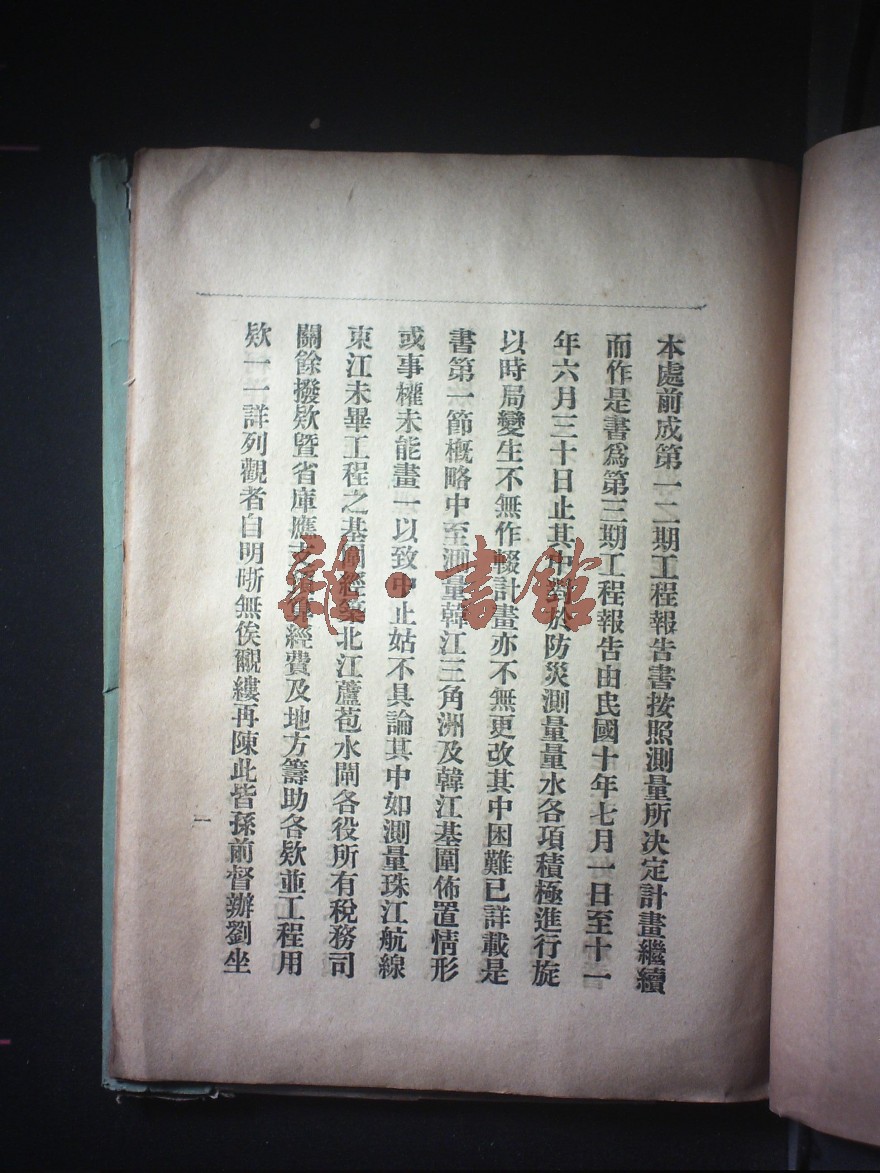 本處前成第一二期工程報告書按照測量所決定計畫繼續
而作是書爲第三期工程報告由民國十年七月一日至十一
年六月三十日止其中對於防災測量量水各項積極進行旋
以時局變生不無作輟計畫亦不無更改其中困難已詳載是
書第一節概略中至測量韓江三角洲及韓江基圍佈置情形
或事權未能畫一以致中止姑不具論其中如測量珠江航線
東江未畢工程之基圍經築北江蘆苞水閘各役所有稅務司
關餘撥欵暨省庫應支經費及地方籌助各欵並工程用
欵一一詳列觀者自明晰無俟覼縷再陳此皆孫前督辦劉坐
一
雜·書館